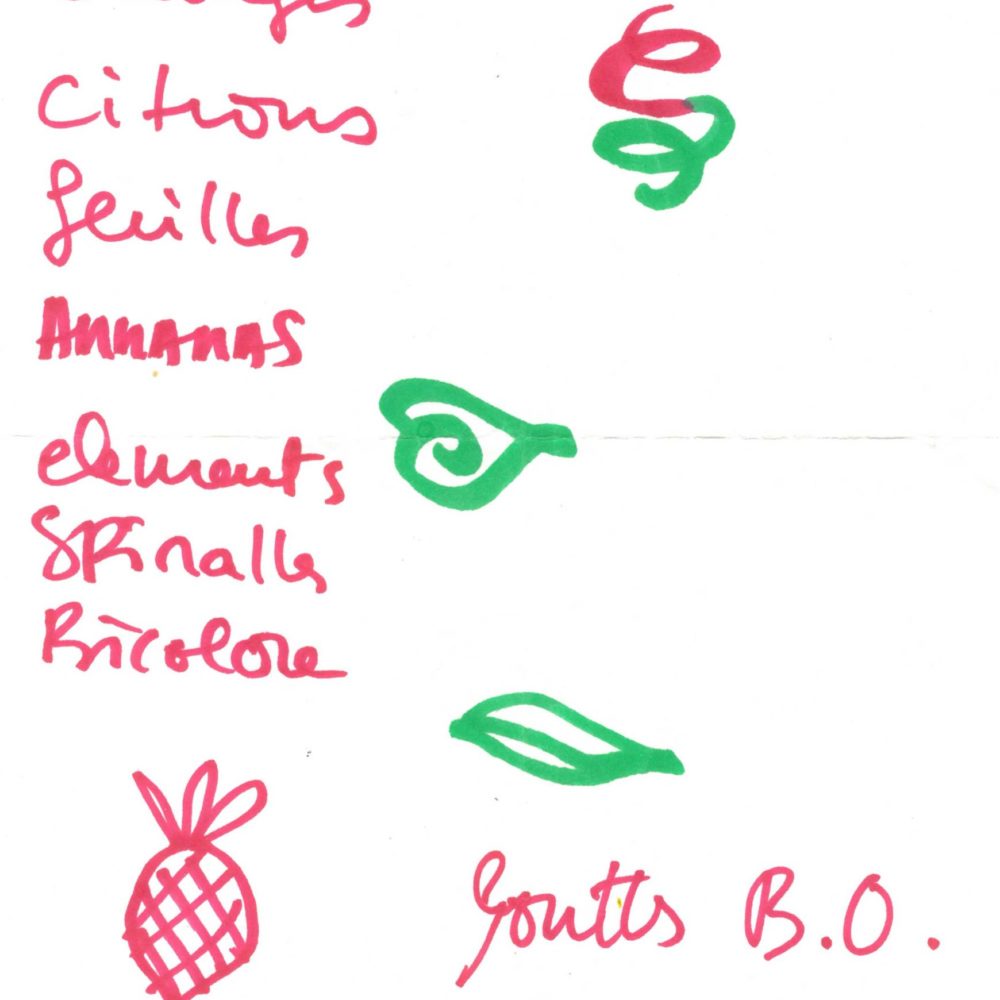 Citrons
feuilles
ANNANAS
elements
SPiralles
Bicolore
Gouttes B.O.